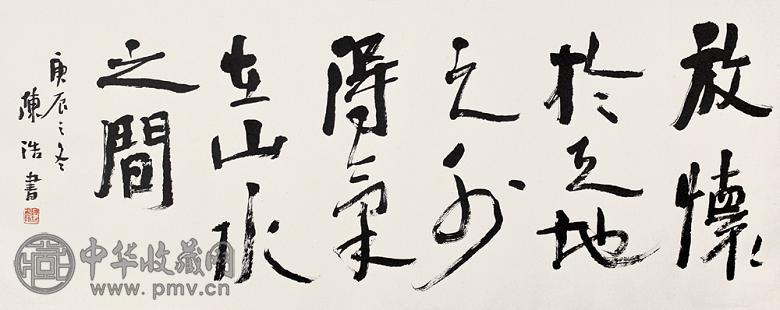 放懷
於天地
之外
得氣
在山水
之間
庚辰之冬
陳浩書
中华收藏网
www.pmv.cn